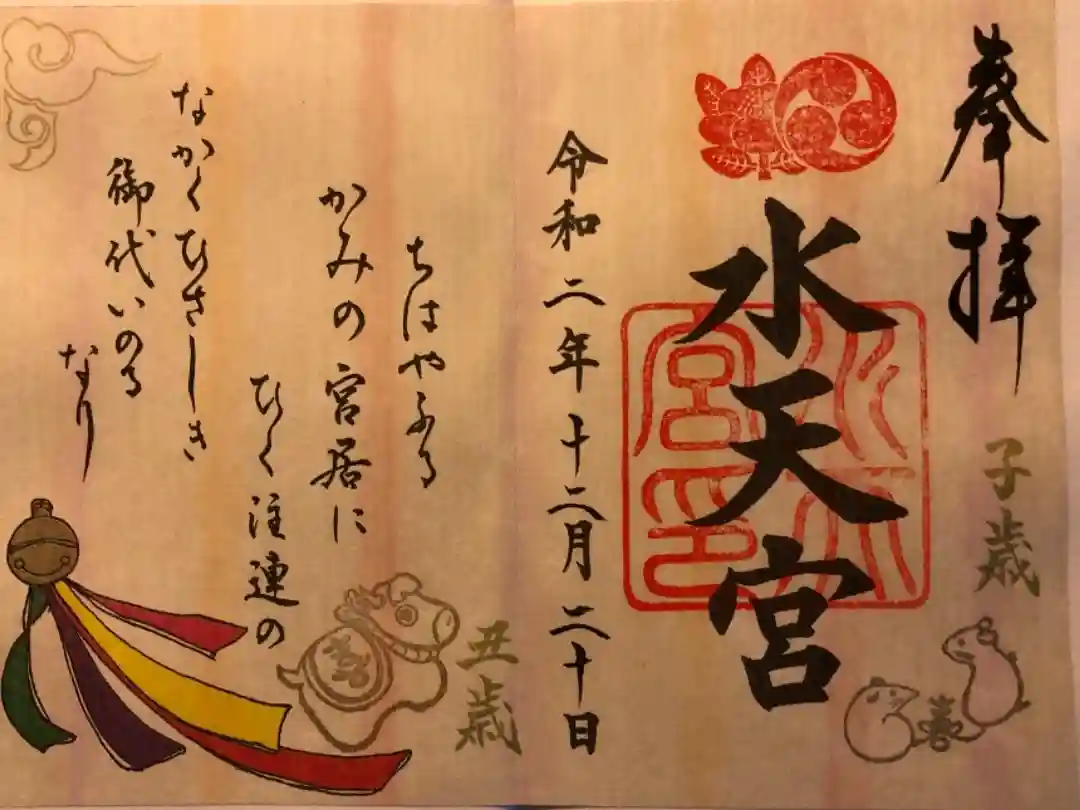 奉拝
子歳
喜
水天宮
水天宮印
令和二年十二月二十日
丑歳
喜
ちはやふる
かみの宮居に
ひく注連の
なかくひさしき
御代いのる
なり